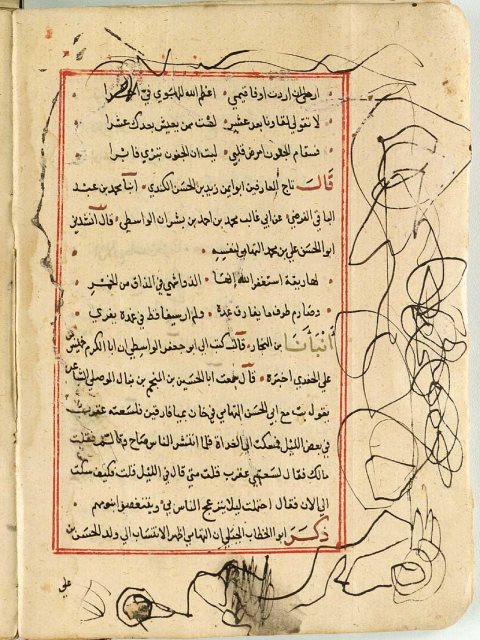 ارحلن اردت اوفاقيمي اعظم الله للهوي في اجرا
لا تقولي لقاؤنا بعد عشر لست ممن يعيش بعدك عشرا
فسقام الجفون امرض قلبي ليت ان الجفون تبري
قال تاج العارفين ابو ايمن زيد بن الحسن الكندي انبا محمد بن عبد
الباقي الفرضي عن ابي غالب محمد بن احمد بن بشران الواسطي قال انشدني
ابو الحسن علي بن محمد التهامي لنفسه
لها ريقة استغفر الله انها الذ واشهي في المذاق من الخمر
وصارم طرف ما يفارق غمده ولم ار سيفا قط في غمده يفري
انبانا بن النجار قال كتب الي ابو جعفر الواسطي ان ابا الكرم خميس
علي الحوزي اخبره قال سمعت ابا الحسين بن المنجم بن نبال الموصلي الشاعر
يقول بت مع ابي الحسن التهامي في خان بميافارقين فلسعته عقرب
في بعض الليل فسكت الي الغداة فلما انتشر الناس صاح وتالم فقلت
مالك فقال لسعتني عقرب قلت متي قال في الليل قلت فكيف سكت
الي الان فقال احتملت ليلا ينزعج الناس في وينتغصوا بنومهم
ذكر ابو الخطاب الجبلي ان التهامي اظهر الانتساب الي ولد الحسن بن
علي